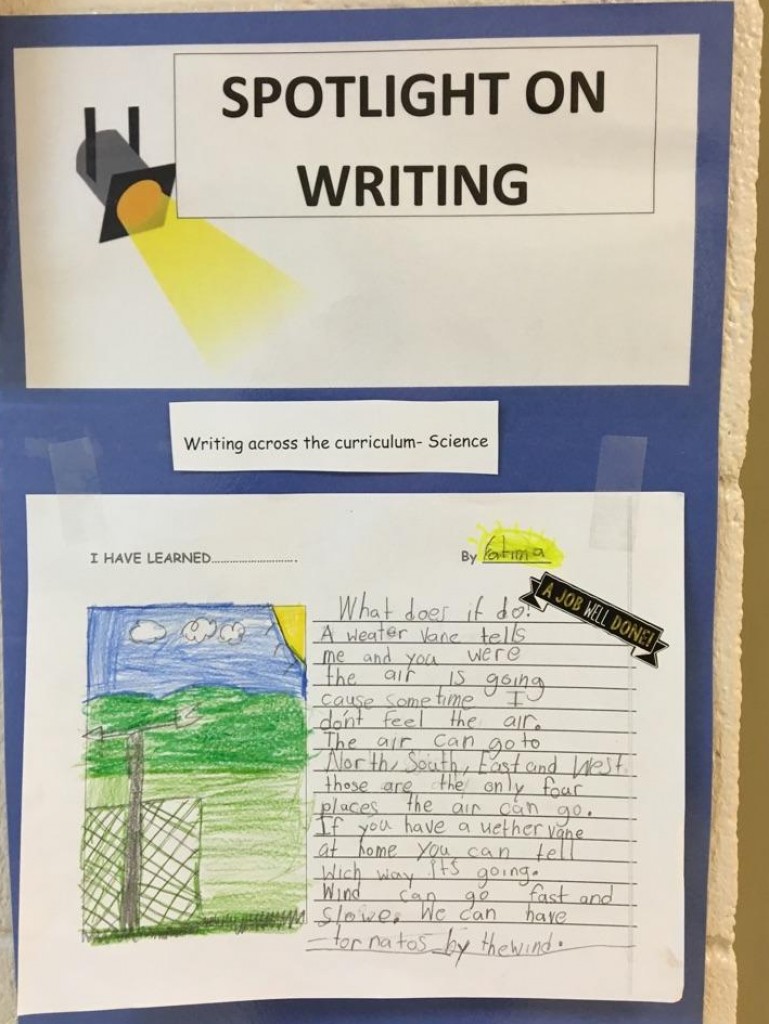 SPOTLIGHT ON
WRITING
Writing across the curriculum- Science
I HAVE LEARNED............................
By Fatima
A JOB WELL DONE!
What does it do!
A weater vane tells
me and you were
the air is going
cause sometime I
don't feel the air.
The air can go to
North, South, East and West
those are the only four
places the air can go.
If you have a wether vane
at home you can tell
wich way it's going.
Wind can go fast and
slowe. We can have
tornatos by the wind.